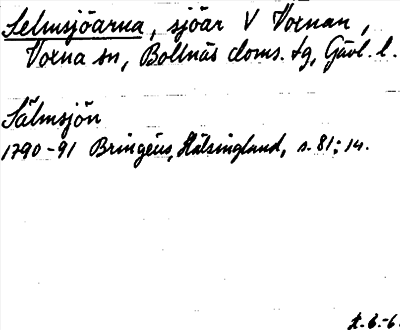 Selmsjöarna, sjöar V Voxnan,
Voxna sn, Bollnäs doms. tg, Gävl. l.
Sälmsjön
1790-91 Bringéus, Hälsingland, s. 81; 14.